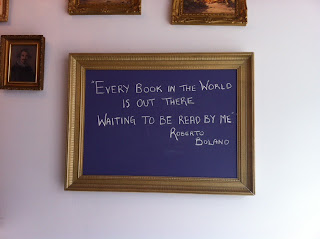 "EVERY BOOK IN THE WORLD
IS OUT THERE
WAITING TO BE READ BY ME"
ROBERTO
BOLANO